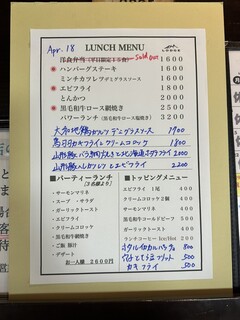 Apr. 18 LUNCH MENU
洋食弁当(平日限定15食) Sold Out 1600
ハンバーグステーキ 1600
ミンチカツレツデミグラスソース 1600
エビフライ 1800
とんかつ 2000
黒毛和牛ロース網焼き 2500
パワーランチ(黒毛和牛ロース塩焼き) 3200
大和地鶏カツレツ デミグラスソース 1900
カキフライとクリームコロッケ 1800
2200
2200
■パーティーランチ
(3名様より)
・サーモンマリネ
・スープ ・サラダ
・ガーリックトースト
・エビフライ
・クリームコロッケ
・黒毛和牛網焼き
・ご飯 豚汁
・デザート
お一人様 2600円
■トッピングメニュー
エビフライ 1尾 400
クリームコロッケ2個 400
サーモンマリネ 500
黒毛和牛コールドビーフ 500
ガーリックトースト 400
ランチコーヒー Ice/Hot 200
ホタルイカ 800
500
カキフライ 500